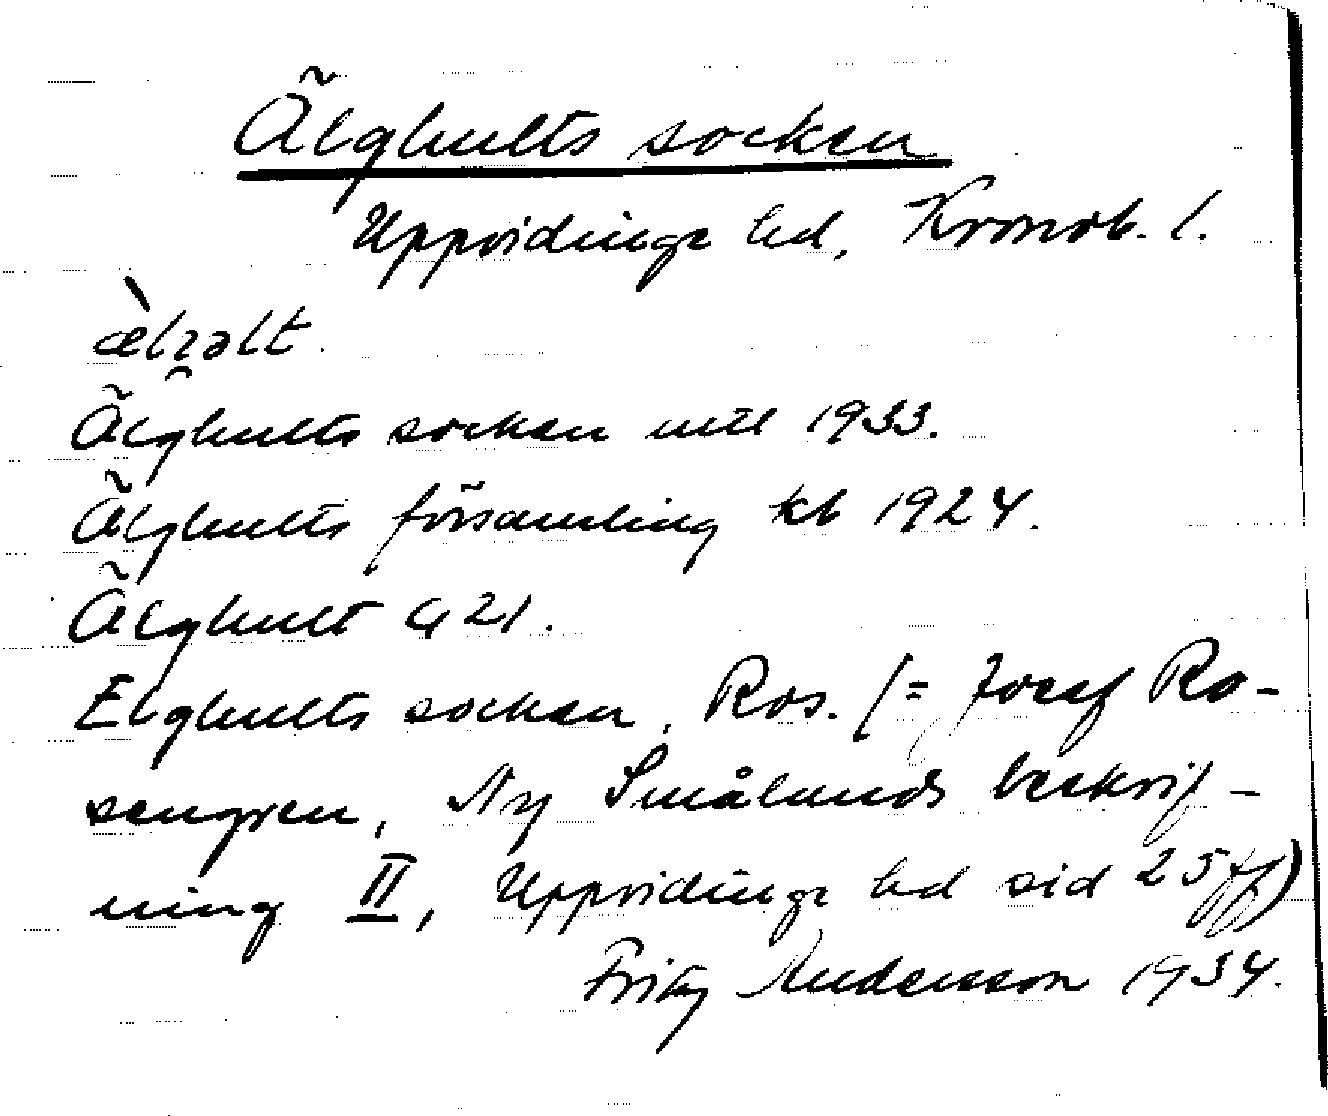 Älghults socken
Uppvidinge hd, Kronob. l.
æ̀lʒəlt.
Älghults socken mtl 1933.
Älghults församling kb 1924.
Älghult G 21.
Elghults socken, Ros. (= Josef Ro-
sengren, Ny Smålands beskrif-
ning II, Uppvidinge hd sid 25 ff)
Fritz Andersson 1934.